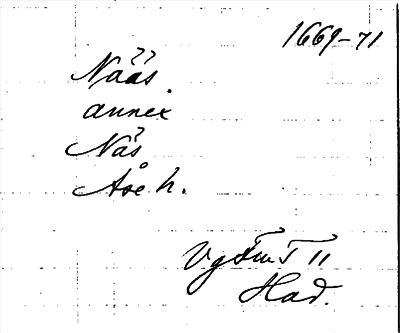 1669-71
Näås
annex
Näs
Åse h.
Vg Fm T II
Had.